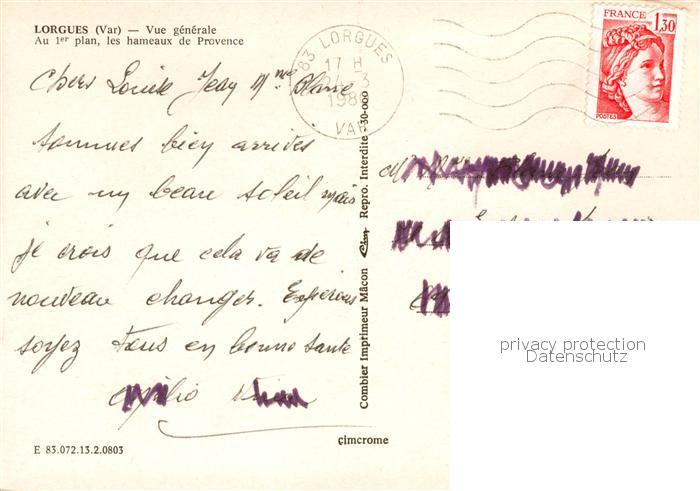 LORGUES (Var) — Vue générale
Au 1er plan, les hameaux de Provence
Chers Louise Jean Mme
sommes bien arrivés
avec un beau soleil mais
je crois que cela va de
nouveau changer. Espérons
soyez tous en bonne santé
E 83.072.13.2.0803
cimcrome
Combier Imprimeur Mâcon Cim Repro. Interdite 30-000
83 LORGUES
17 H
24-3
VAR
FRANCE
1,30
POSTES
privacy protection
Datenschutz